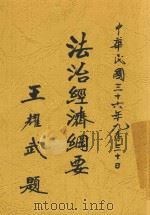 中華民國三十六年九月二十日
法治經濟綱要
王耀武題